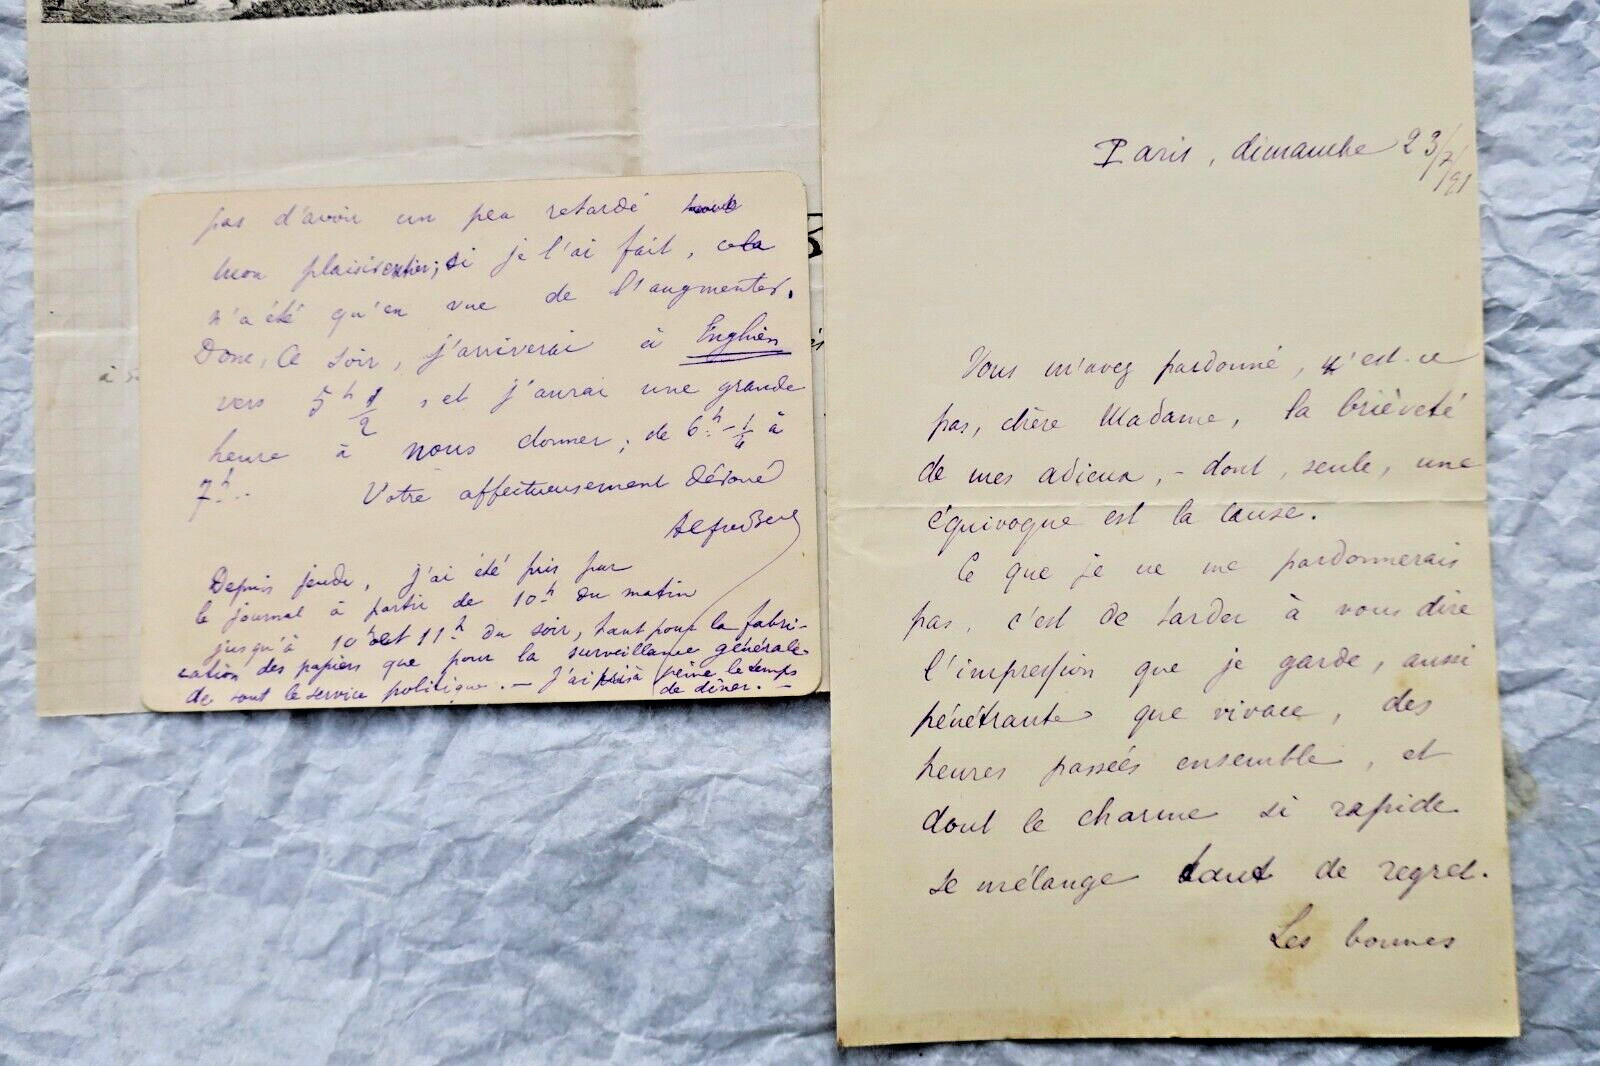 pas d'avoir un peu retardé
mon plaisir entier; si je l'ai fait, cela
n'a été qu'en vue de l'augmenter.
Donc, ce soir, j'arriverai à Enghien
vers 5h 1/2, et j'aurai une grande
heure à nous donner; de 6h-1/4 à
7h.. Votre affectueusement dévoué
Depuis jeudi, j'ai été pris par
le journal à partir de 10h du matin
jusqu'à 10h et 11h du soir, tant pour la fabri-
cation des papiers que pour la surveillance générale
de tout le service politique. — J'ai à peine le temps
de dîner. —
à
Paris, dimanche 23/7/91
Vous m'avez pardonné, n'est-ce
pas, chère Madame, la brièveté
de mes adieux, - dont, seule, une
équivoque est la cause.
Ce que je ne me pardonnerais
pas, c'est de tarder à vous dire
l'impression que je garde, aussi
pénétrante que vivace, des
heures passées ensemble, et
dont le charme si rapide
se mélange tant de regret.
Les bonnes